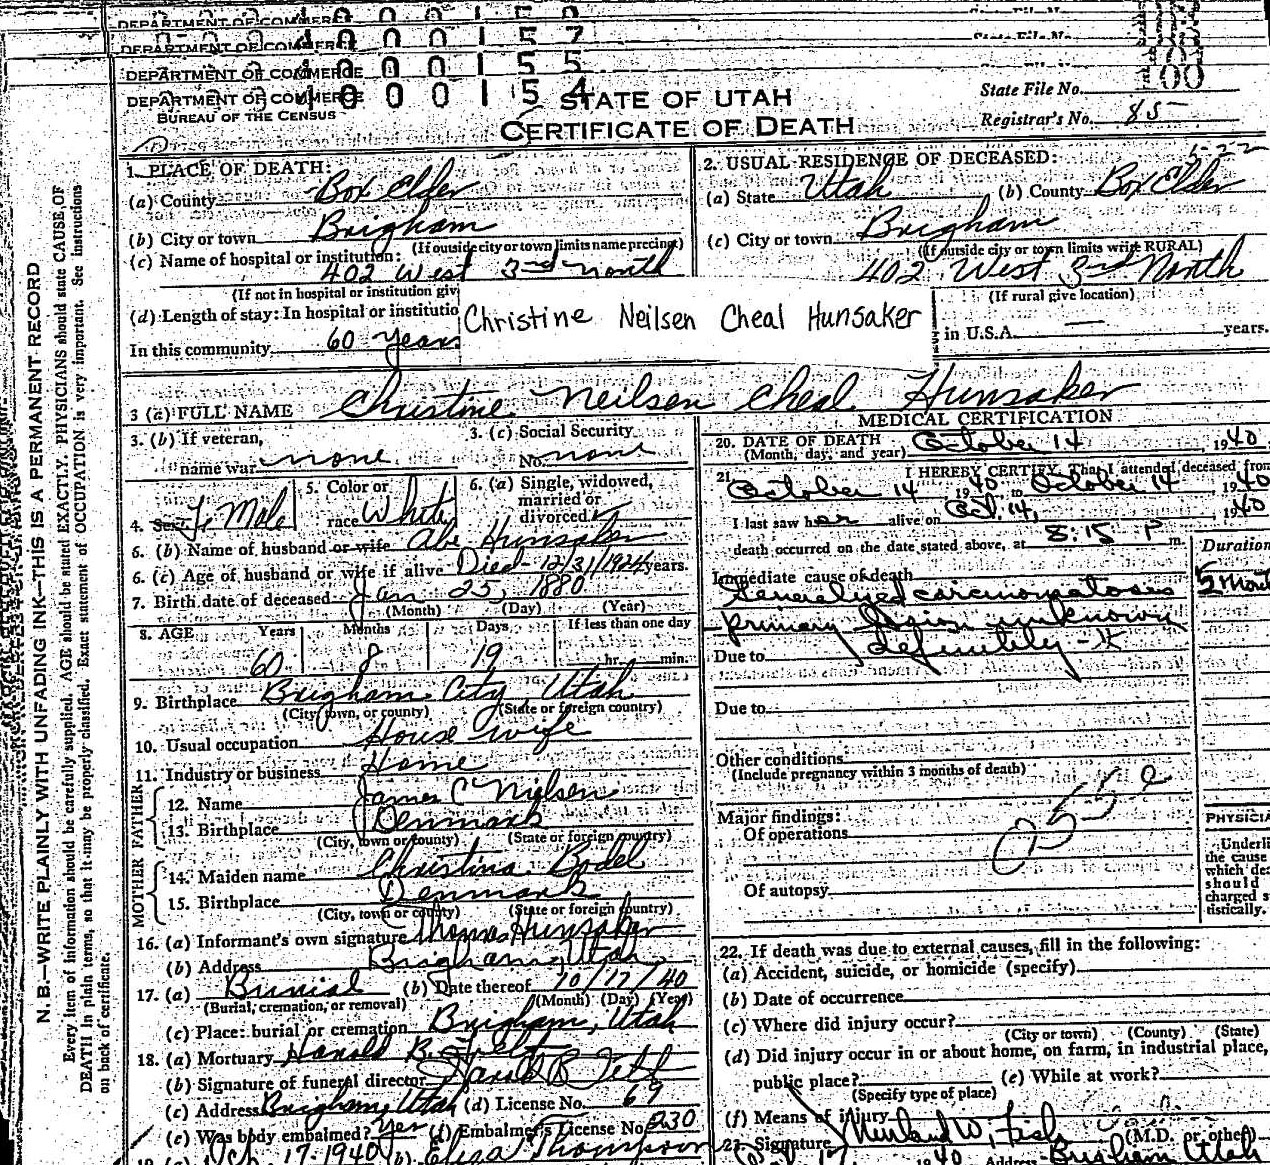 DEPARTMENT OF COMMERCE
DEPARTMENT OF COMMERCE
DEPARTMENT OF COMMERCE
DEPARTMENT OF COMMERCE
BUREAU OF THE CENSUS
STATE OF UTAH
CERTIFICATE OF DEATH
State File No.
Registrar's No. 85
N. B.—WRITE PLAINLY WITH UNFADING INK—THIS IS A PERMANENT RECORD
Every item of information should be carefully supplied. AGE should be stated EXACTLY. PHYSICIANS should state CAUSE OF
DEATH in plain terms, so that it may be properly classified. Exact statement of OCCUPATION is very important. See instructions
on back of certificate.
1. PLACE OF DEATH:
(a) County Box Elder
(b) City or town Brigham
(If outside city or town limits name precinct)
(c) Name of hospital or institution:
402 West 3rd North
(If not in hospital or institution giv
(d) Length of stay: In hospital or institutio
In this community 60 years
2. USUAL RESIDENCE OF DECEASED:
(a) State Utah (b) County Box Elder
(c) City or town Brigham
(If outside city or town limits write RURAL)
402 West 3rd North
(If rural give location)
in U.S.A. — years.
Christine Neilsen Cheal Hunsaker
3 (a) FULL NAME Christine Neilsen Cheal Hunsaker
3. (b) If veteran,
name war none
3. (c) Social Security
No. none
4. Sex Fe Male
5. Color or
race White
6. (a) Single, widowed,
married or
divorced
6. (b) Name of husband or wife Abe Hunsaker
6. (c) Age of husband or wife if alive Died-12/31/1924 years.
7. Birth date of deceased Jan 25, 1880
(Month) (Day) (Year)
8. AGE Years Months Days If less than one day
60 8 19 hr. min.
9. Birthplace Brigham City Utah
(City town, or county) (State or foreign country)
10. Usual occupation House wife
11. Industry or business Home
FATHER
12. Name James C Nielsen
13. Birthplace Denmark
(City, town or county) (State or foreign country)
MOTHER
14. Maiden name Christina Bodel
15. Birthplace Denmark
(City, town or county) (State or foreign country)
16. (a) Informant's own signature Thomas Hunsaker
(b) Address Brigham, Utah
17. (a) Burial (b) Date thereof 10/17/40
(Burial, cremation, or removal) (Month) (Day) (Year)
(c) Place: burial or cremation Brigham, Utah
18. (a) Mortuary Harold B. Felt
(b) Signature of funeral director Harold B Felt
(c) Address Brigham, Utah (d) License No. 69
(e) Was body embalmed? Yes (f) Embalmer's License No. 230
Oct. 17-1940 (b) Eliza Thompson
MEDICAL CERTIFICATION
20. DATE OF DEATH October 14 1940
(Month, day, and year)
21. I HEREBY CERTIFY, That I attended deceased from
October 14 1940 to October 14 1940
I last saw her alive on Oct. 14, 1940
death occurred on the date stated above, at 8:15 P m.
Duration
Immediate cause of death
Generalized carcinomatosis 5 Mont
primary Origin unknown
Due to definitely
Due to
Other conditions
(Include pregnancy within 3 months of death)
Major findings:
Of operations
055
Of autopsy
PHYSICIA
Underli
the cause
which dea
should
charged s
tistically.
22. If death was due to external causes, fill in the following:
(a) Accident, suicide, or homicide (specify)
(b) Date of occurrence
(c) Where did injury occur?
(City or town) (County) (State)
(d) Did injury occur in or about home, on farm, in industrial place,
public place? (e) While at work?
(Specify type of place)
(f) Means of injury
Signature (M.D. or other)
1940 Address Brigham Utah